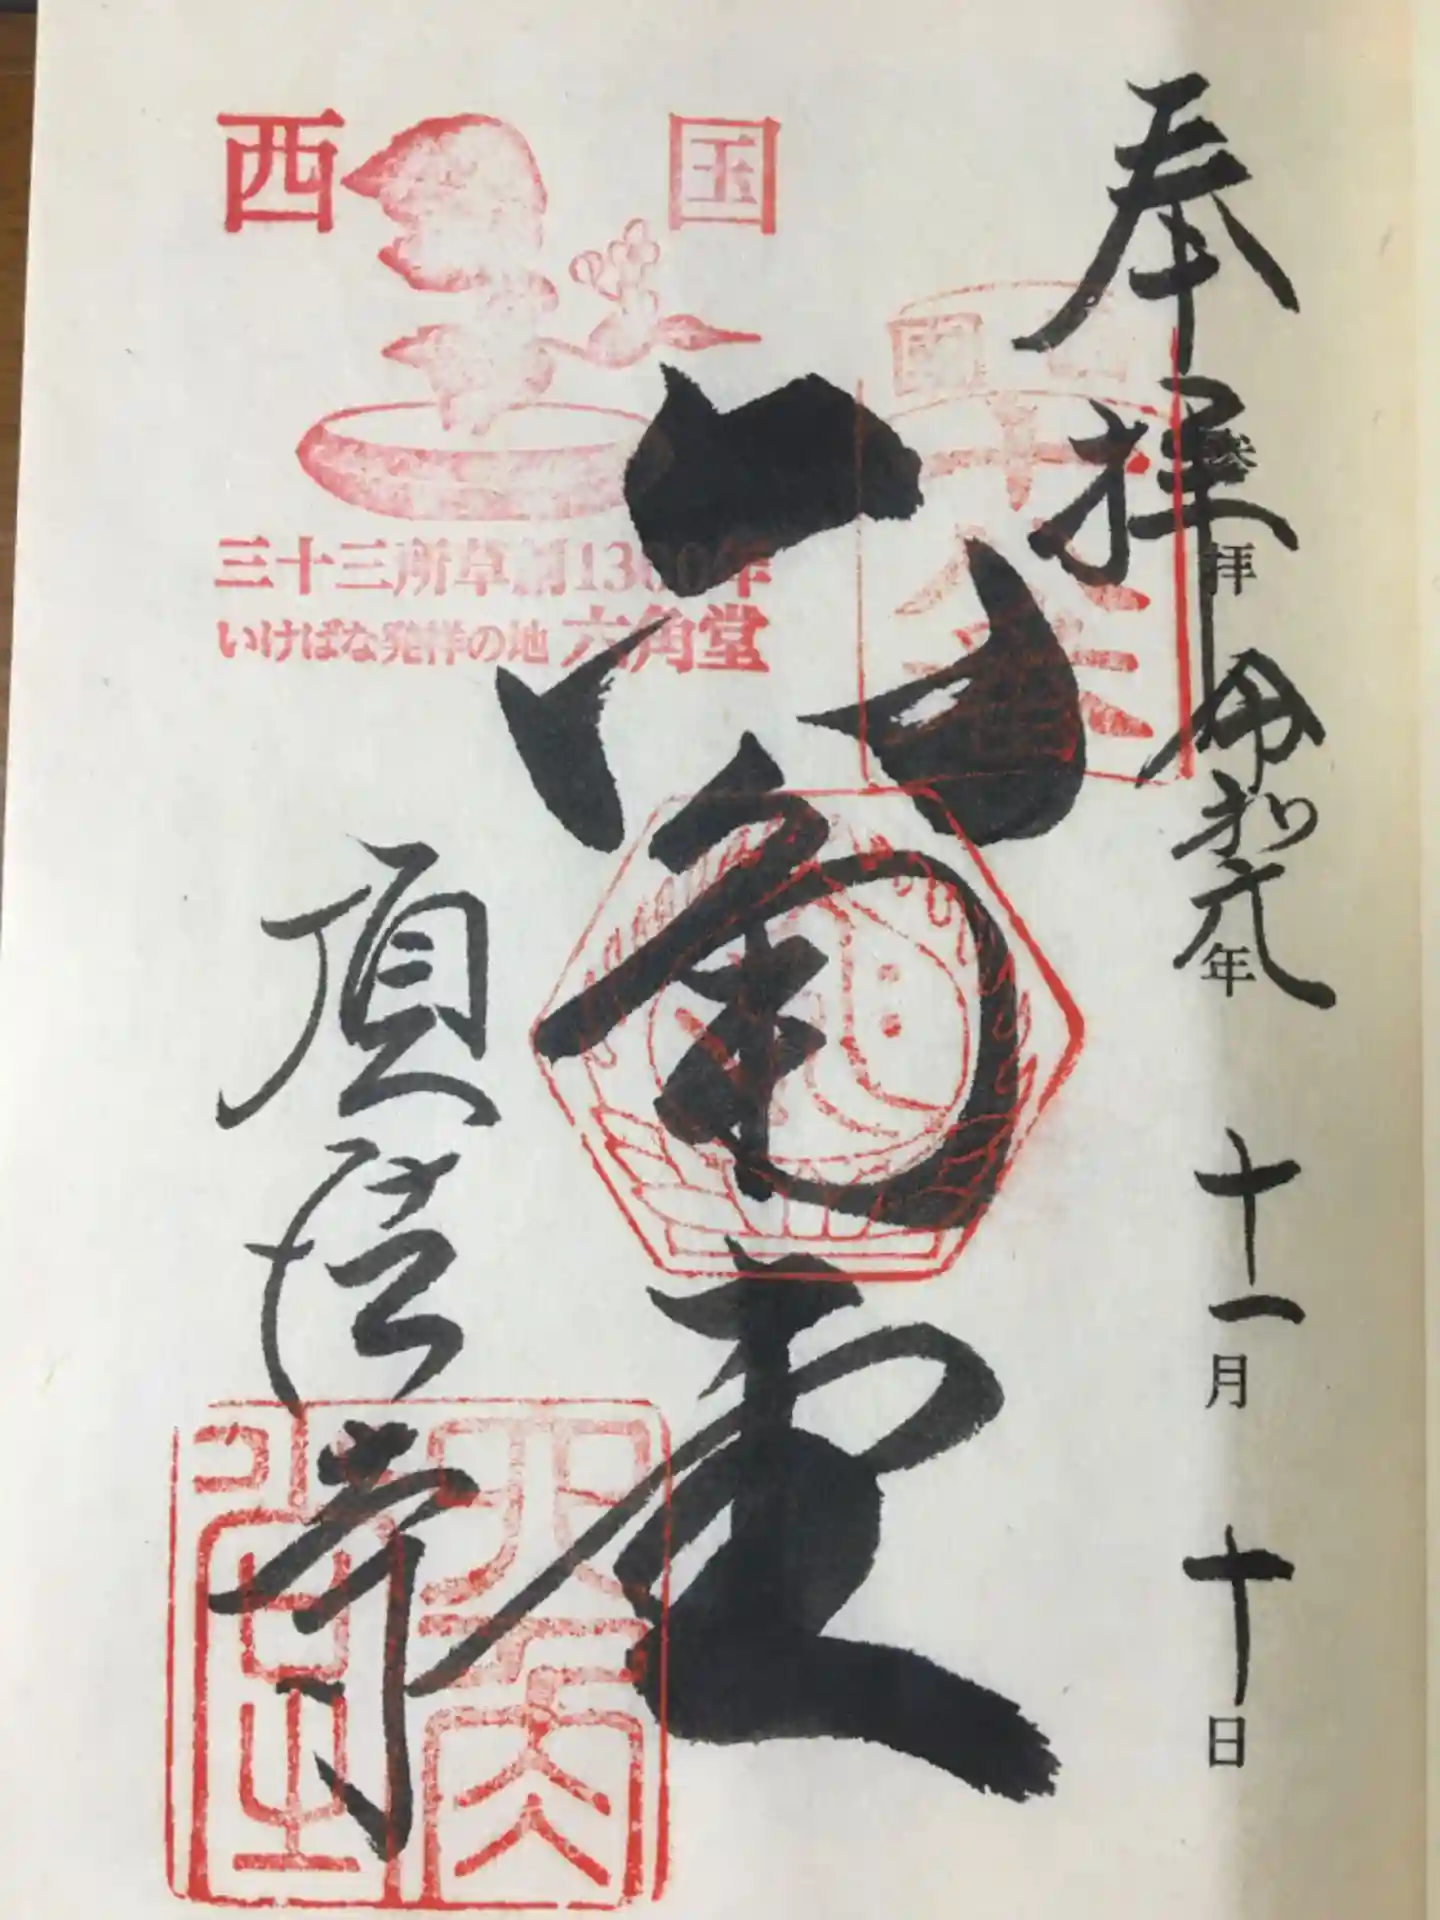 奉拝
参拝 令和元年 十一月 十日
六角堂
頂法寺
西国
三十三所草創1300年
いけばな発祥の地 六角堂